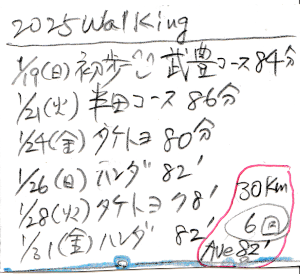 2025 Walking
1/19(日)初歩 武豊コース84分
1/21(火)半田コース 86分
1/24(金)タケトヨ 80分
1/26(日)ハンダ 82'
1/28(火)タケトヨ 78'
1/31(金)ハンダ 82'
30Km
6回
Ave 82'